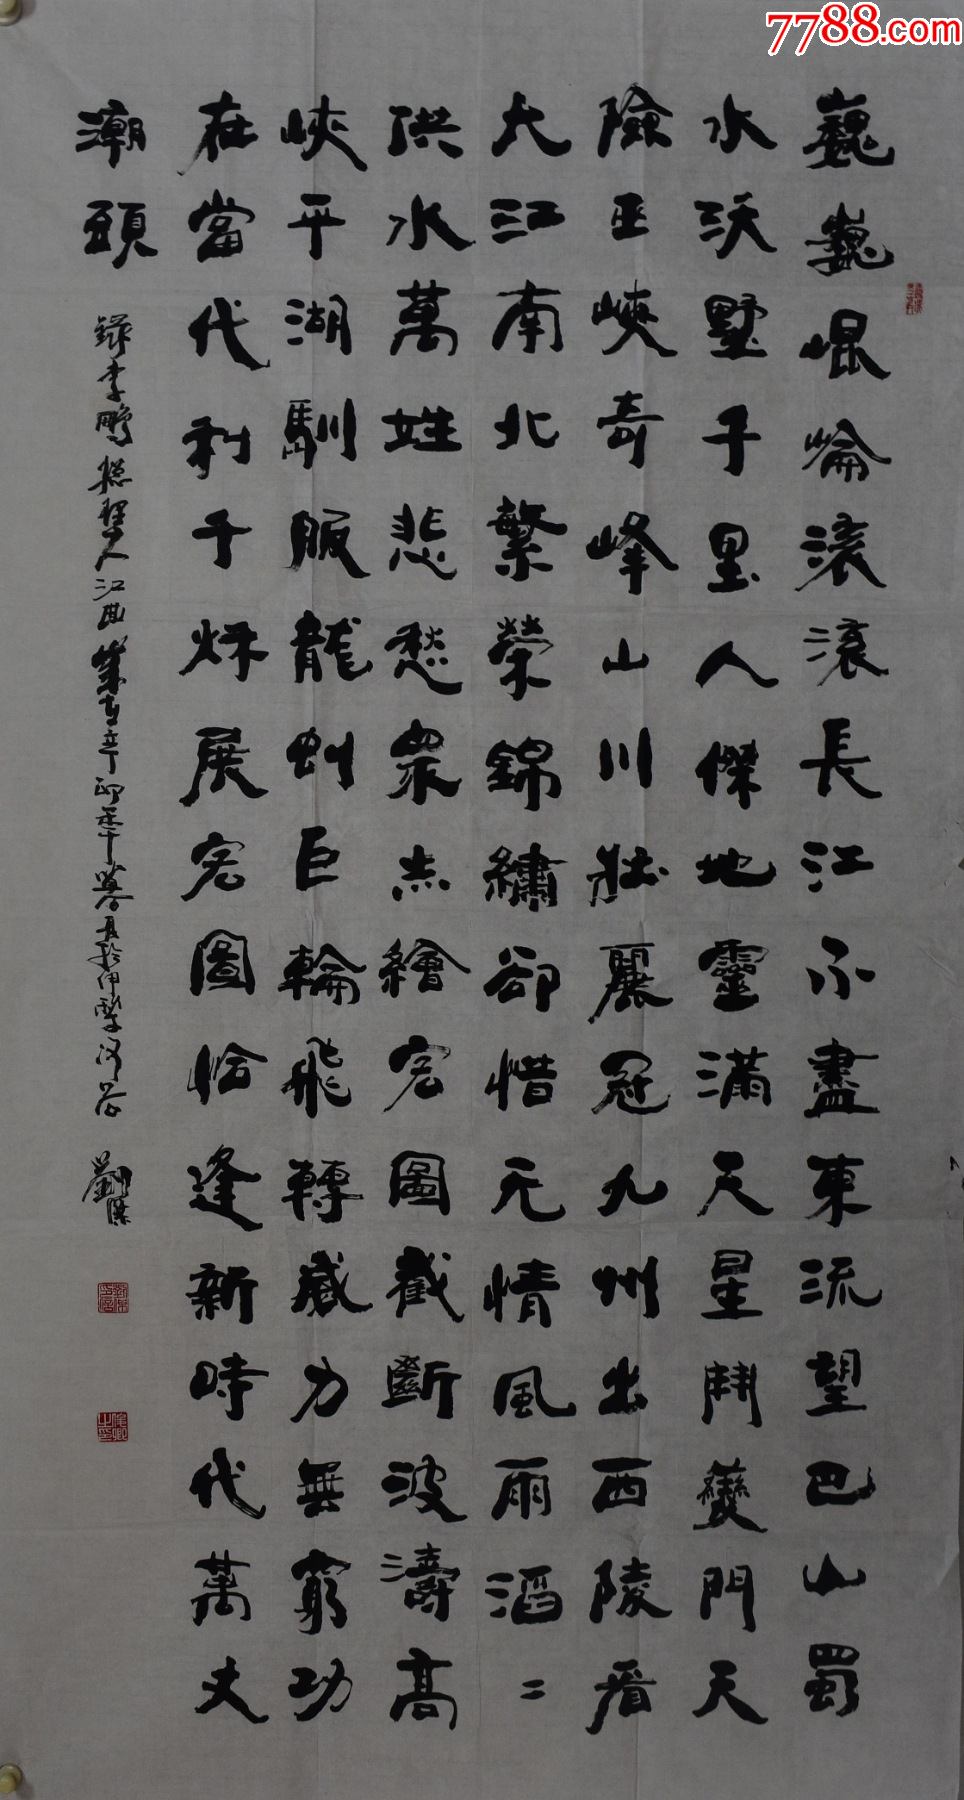 7788.com
巍巍崐崘滚滚長江不盡東流望巴山蜀
水沃墅千里人傑地靈滿天星鬥夔門天
險巫峽奇峰山川壯麗冠九州出西陵看
大江南北繁榮錦繡卻惜无情風雨滔〻
洪水萬姓悲愁眾志繪宏圖截斷波濤高
峽平湖馴服龍蛇巨輪飛轉威力無窮功
在當代利千秋展宏圖恰逢新時代萬丈
潮頭
錄李鵬總理大江曲歲在辛卯年暮夏於伊犂河谷
劉